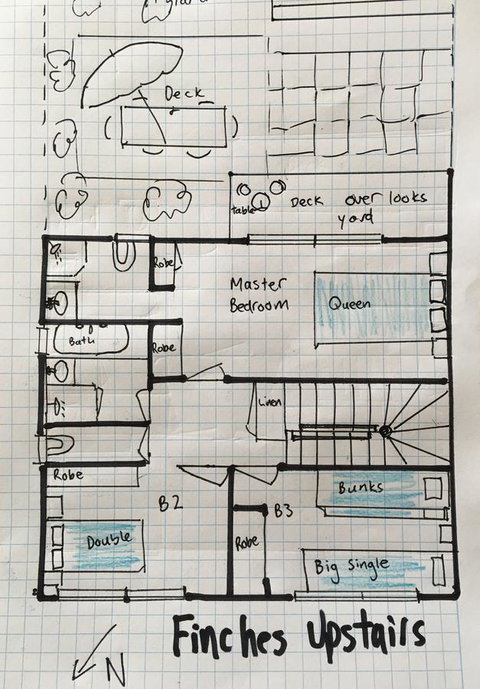 Deck
table
Deck over looks
yard
Robe
Master
Bedroom
Queen
Bath
Robe
Linen
Robe
B2
Bunks
B3
Double
Robe
Big Single
Finches Upstairs
N